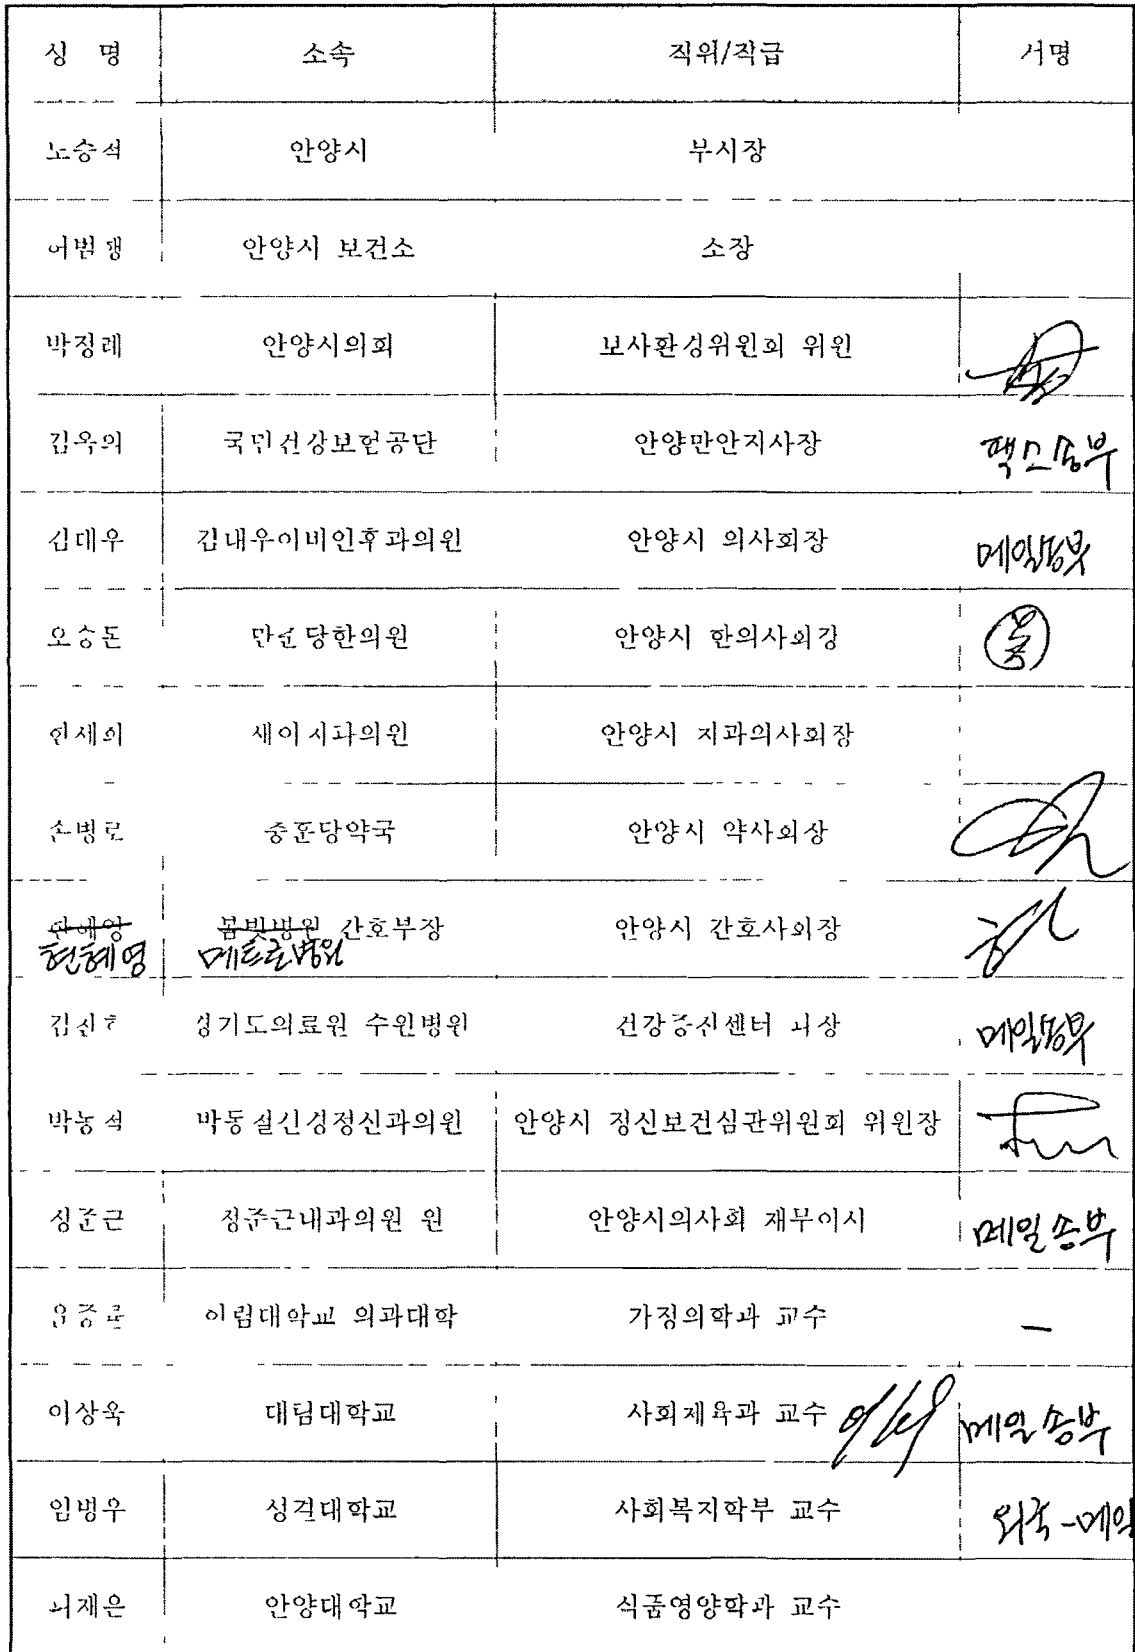 성 명 소속 직위/직급 서명
노승석 안양시 부시장
안양시 보건소 소장
박정례 안양시의회 보사환경위원회 위원
김옥의 국민건강보험공단 안양만안지사장 팩스송부
김대우 김대우이비인후과의원 안양시 의사회장 메일송부
오승돈 한의원 안양시 한의사회장
안양시 치과의사회장
손병로 중훈당약국 안양시 약사회장
봄빛병원 간호부장 안양시 간호사회장
현혜영 메트로병원
경기도의료원 수원병원 건강증진센터 메일송부
안양시 정신보건심판위원회 위원장
정준근 정준근내과의원 원 안양시의사회 재무이사 메일송부
의과대학 가정의학과 교수 -
이상욱 대림대학교 사회체육과 교수 메일송부
임병우 성결대학교 사회복지학부 교수 외국-메일
안양대학교 식품영양학과 교수